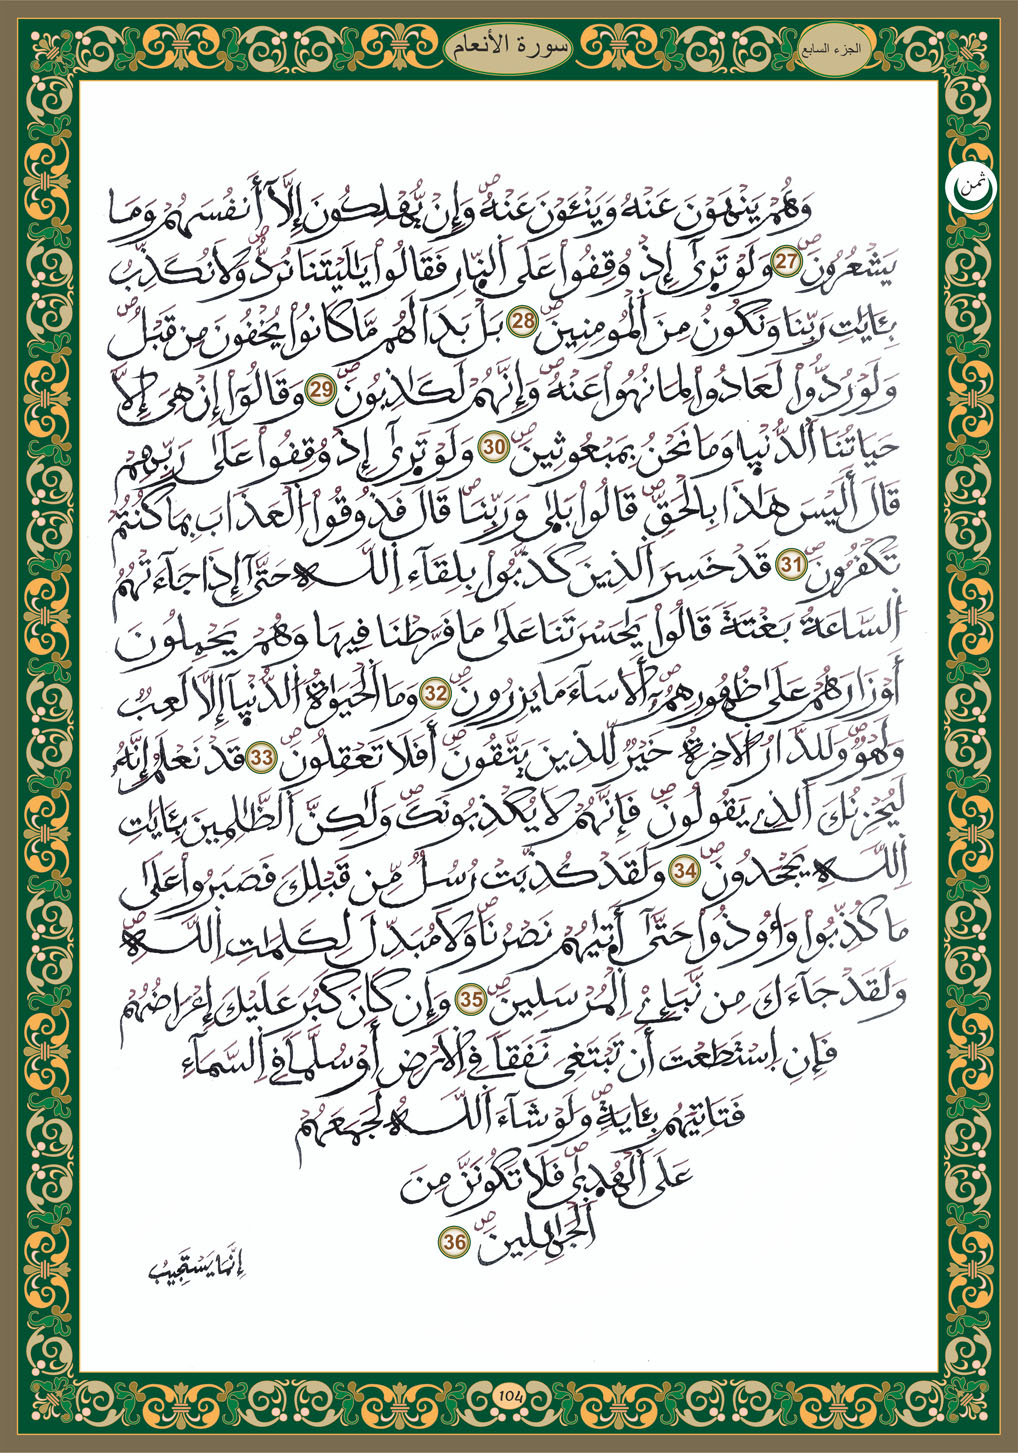 سورة الأنعام
الجزء السابع
ثمن
وَهُمْ يَنْهَوْنَ عَنْهُ وَيَنْـَٔوْنَ عَنْهُ وَإِنْ يُّهْلِكُونَ إِلَّآ أَنفُسَهُمْ وَمَا
يَشْعُرُونَ 27 وَلَوْ تَرَىٰٓ إِذْ وُقِفُواْ عَلَى اَ۬لنّ۪ارِ فَقَالُواْ يَٰلَيْتَنَا نُرَدُّ وَلَا نُكَذِّبُ
بِـَٔايَٰتِ رَبِّنَا وَنَكُونُ مِنَ اَ۬لْمُومِنِينَ 28 بَلْ بَدَا لَهُم مَّا كَانُواْ يُخْفُونَ مِن قَبْلُ
وَلَوْ رُدُّواْ لَعَادُواْ لِمَا نُهُواْ عَنْهُ وَإِنَّهُمْ لَكَٰذِبُونَ 29 وَقَالُوٓاْ إِنْ هِىَ إِلَّا
حَيَاتُنَا اَ۬لدُّنْي۪ا وَمَا نَحْنُ بِمَبْعُوثِينَ 30 وَلَوْ تَرَىٰٓ إِذْ وُقِفُواْ عَلَىٰ رَبِّهِمْ
قَالَ أَلَيْسَ هَٰذَا بِالْحَقِّ قَالُواْ بَلَىٰ وَرَبِّنَا قَالَ فَذُوقُواْ اُ۬لْعَذَابَ بِمَا كُنتُمْ
تَكْفُرُونَ 31 قَدْ خَسِرَ اَ۬لذِينَ كَذَّبُواْ بِلِقَآءِ اِ۬للَّهِ حَتَّىٰٓ إِذَا جَآءَتْهُمُ
اُ۬لسَّاعَةُ بَغْتَةً قَالُواْ يَٰحَسْرَتَنَا عَلَىٰ مَا فَرَّطْنَا فِيهَا وَهُمْ يَحْمِلُونَ
أَوْزَارَهُمْ عَلَىٰ ظُهُورِهِمُۥٓ أَلَا سَآءَ مَا يَزِرُونَ 32 وَمَا اَ۬لْحَيَوٰةُ اُ۬لدُّنْي۪آ إِلَّا لَعِبٌ
وَلَهْوٌ وَلَلدَّارُ اُ۬لَاخِرَةُ خَيْرٌ لِّلذِينَ يَتَّقُونَ أَفَلَا تَعْقِلُونَ 33 قَدْ نَعْلَمُ إِنَّهُۥ
لَيُحْزِنُكَ اَ۬لذِے يَقُولُونَ فَإِنَّهُمْ لَا يُكْذِبُونَكَ وَلَٰكِنَّ اَ۬لظَّٰلِمِينَ بِـَٔايَٰتِ
اِ۬للَّهِ يَجْحَدُونَ 34 وَلَقَدْ كُذِّبَتْ رُسُلٌ مِّن قَبْلِكَ فَصَبَرُواْ عَلَىٰ
مَا كُذِّبُواْ وَأُوذُواْ حَتَّىٰٓ أَت۪يٰهُمْ نَصْرُنَا وَلَا مُبَدِّلَ لِكَلِمَٰتِ اِ۬للَّهِ
وَلَقَدْ جَآءَكَ مِن نَّبَإِےْ اِ۬لْمُرْسَلِينَ 35 وَإِن كَانَ كَبُرَ عَلَيْكَ إِعْرَاضُهُمْ
فَإِنِ اِ۪سْتَطَعْتَ أَن تَبْتَغِىَ نَفَقاً فِى اِ۬لَارْضِ أَوْ سُلَّماً فِى اِ۬لسَّمَآءِ
فَتَاتِيَهُم بِـَٔايَةٍ وَلَوْ شَآءَ اَ۬للَّهُ لَجَمَعَهُمْ
عَلَى اَ۬لْهُد۪ىٰ فَلَا تَكُونَنَّ مِنَ
اَ۬لْجَٰهِلِينَ 36
إِنَّمَا يَسْتَجِيبُ
104